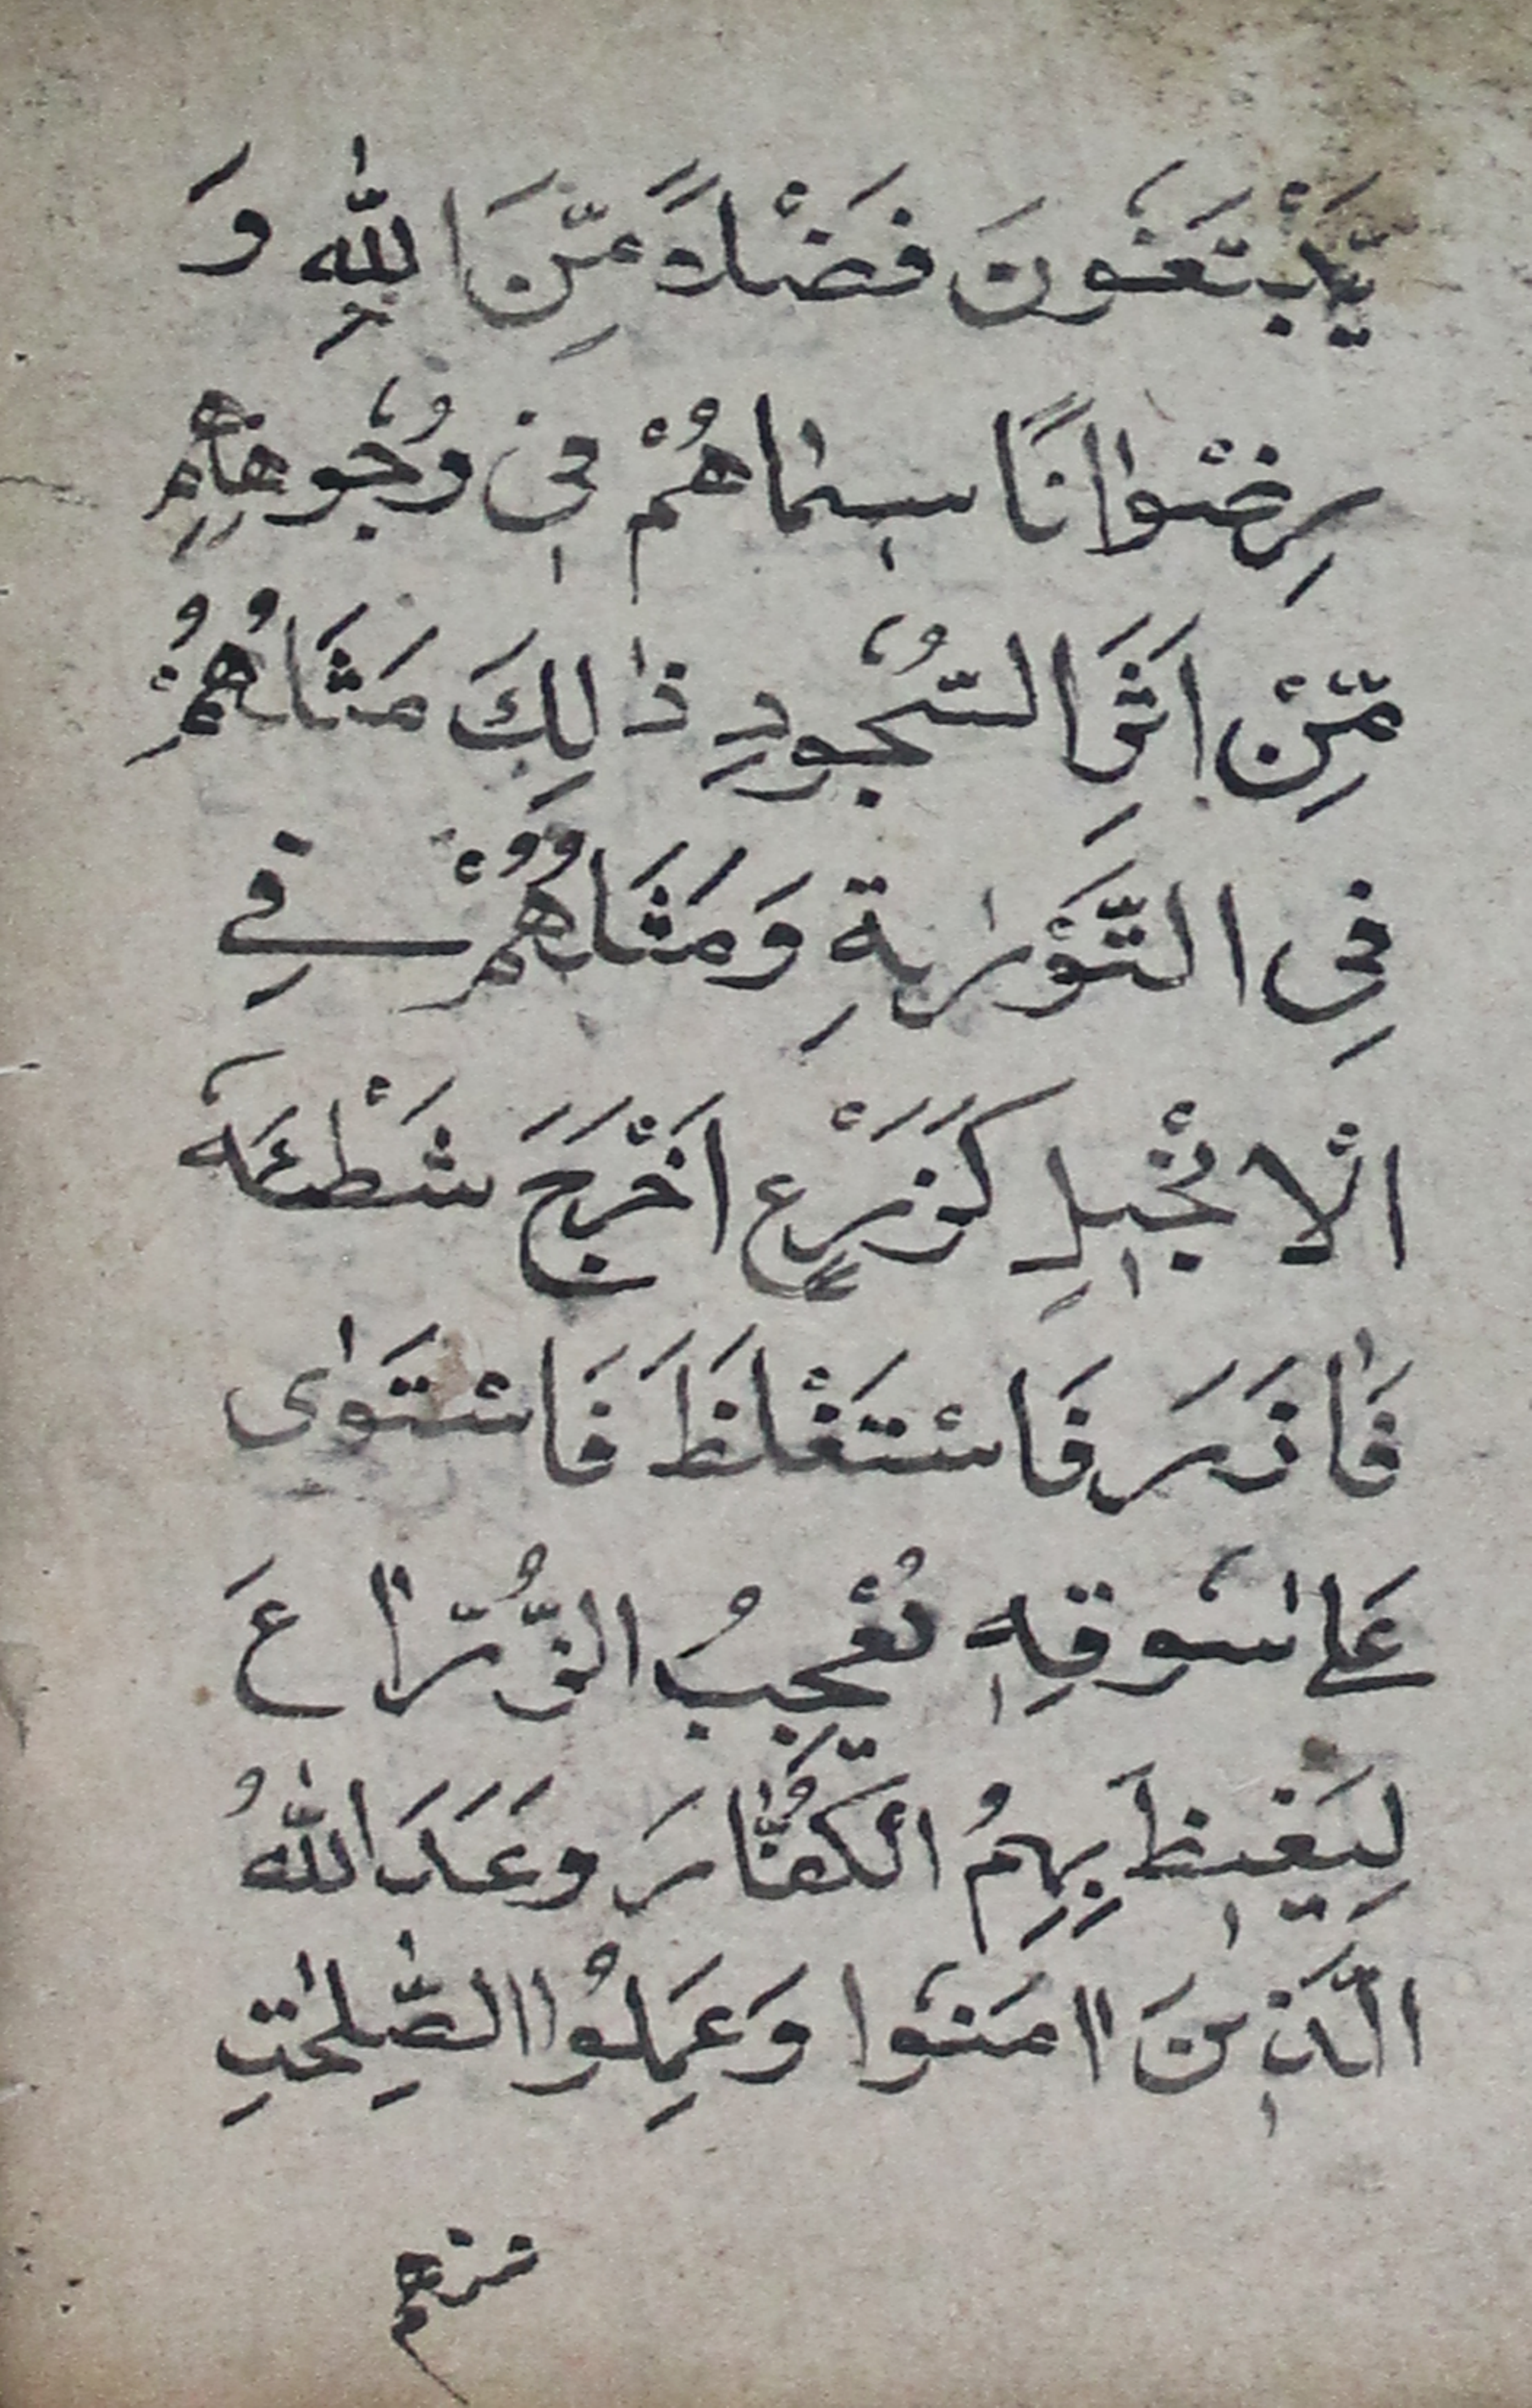 يَّبْتَغُونَ فَضْلاً مِّنَ اللّٰهِ وَ
رِضْوٰانًا سِيْمَاهُمْ فِيْ وُجُوهِهِمْ
مِّنْ اَثَرِ السُّجُودِ ذٰلِكَ مَثَلُهُمْ
فِي التَّوْرٰيةِ وَمَثَلُهُمْ فِي
اْلاِنْجِيلِ كَزَرْعٍ اَخْرَجَ شَطْئَهُ
فَاٰزَرَ فَاسْتَغْلَظَ فَاسْتَوٰى
عَلىٰ سُوقِهٖ يُعْجِبُ الزُّرَّاعَ
لِيَغِيظَ بِهِمُ الْكُفَّارَ وَعَدَ اللّٰهُ
الَّذِينَ اٰمَنُوا وَعَمِلُوا الصّٰلِحٰتِ
منهم